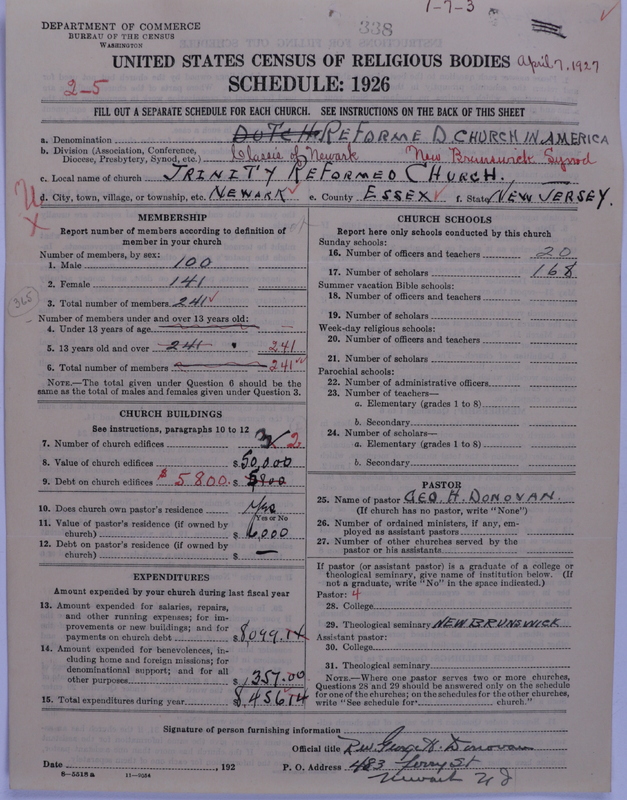 1-7-3
DEPARTMENT OF COMMERCE
BUREAU OF THE CENSUS
WASHINGTON
338
UNITED STATES CENSUS OF RELIGIOUS BODIES April 7, 1927
2-5
SCHEDULE: 1926
FILL OUT A SEPARATE SCHEDULE FOR EACH CHURCH. SEE INSTRUCTIONS ON THE BACK OF THIS SHEET
a. Denomination DUTCH REFORMED CHURCH IN AMERICA
b. Division (Association, Conference, Diocese, Presbytery, Synod, etc.) Classis of Newark New Brunswick Synod
c. Local name of church TRINITY REFORMED CHURCH.
d. City, town, village, or township, etc. NEWARK e. County ESSEX f. State NEW JERSEY.
MEMBERSHIP
Report number of members according to definition of
member in your church
Number of members, by sex:
1. Male 100
2. Female 141
3. Total number of members 241
365
Number of members under and over 13 years old:
4. Under 13 years of age
5. 13 years old and over 241 241
6. Total number of members 241
NOTE.—The total given under Question 6 should be
same as the total of males and females given under Question 3.
CHURCH BUILDINGS
See instructions, paragraphs 10 to 12
7. Number of church edifices 3 2
8. Value of church edifices $50,000
9. Debt on church edifices $5800. $5800
10. Does church own pastor's residence Yes
Yes or No
11. Value of pastor's residence (if owned by
church) $6,000
12. Debt on pastor's residence (if owned by
church) $ —
EXPENDITURES
Amount expended by your church during last fiscal year
13. Amount expended for salaries, repairs,
and other running expenses; for im-
provements or new buildings; and for
payments on church debt $8,099.14
14. Amount expended for benevolences, in-
cluding home and foreign missions; for
denominational support; and for all
other purposes $357.00
15. Total expenditures during year $8,456.14
CHURCH SCHOOLS
Report here only schools conducted by this church
Sunday schools:
16. Number of officers and teachers 20
17. Number of scholars 168
Summer vacation Bible schools:
18. Number of officers and teachers
19. Number of scholars
Week-day religious schools:
20. Number of officers and teachers
21. Number of scholars
Parochial schools:
22. Number of administrative officers
23. Number of teachers—
a. Elementary (grades 1 to 8)
b. Secondary
24. Number of scholars—
a. Elementary (grades 1 to 8)
b. Secondary
PASTOR
25. Name of pastor GEO. H. DONOVAN.
(If church has no pastor, write "None")
26. Number of ordained ministers, if any, em-
ployed as assistant pastors
27. Number of other churches served by the
pastor or his assistants
If pastor (or assistant pastor) is a graduate of a college or
theological seminary, give name of institution below. (If
not a graduate, write "No" in the space indicated.)
Pastor: 4
28. College
29. Theological seminary NEW BRUNSWICK
Assistant pastor:
30. College
31. Theological seminary
NOTE.—Where one pastor serves two or more churches,
Questions 28 and 29 should be answered only on the schedule
for one of the churches; on the schedules for the other churches,
write "See schedule for church."
Signature of person furnishing information
Official title Rev. George H. Donovan
Date , 192 P. O. Address 483 Ferry St
8-5518a 11-9034 Newark N J